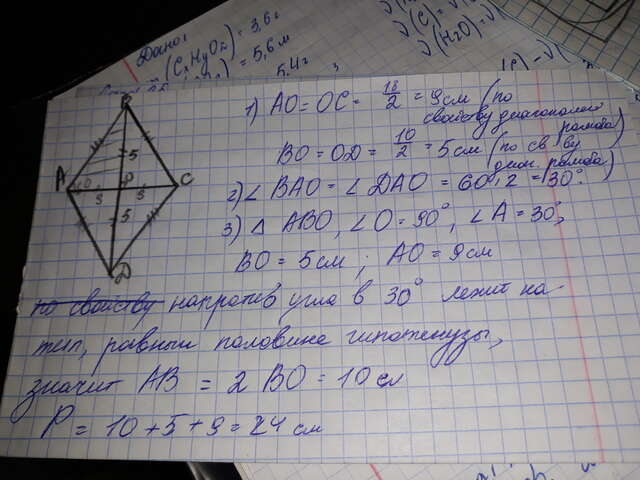 Дано:
(CxHyOz) = 3,6г
= 5,6 л
5,4г
ν(C) = ν
ν(H2O) = ν
B
A
C
D
O
5
5
9
9
1) AO = OC = 18/2 = 9 см (по
свойству диагоналей
ромба)
BO = OD = 10/2 = 5 см (по св-ву
диаг. ромба)
2) ∠ BAO = ∠ DAO = 60° : 2 = 30°.
3) △ ABO, ∠O = 90°, ∠A = 30°,
BO = 5 см ; AO = 9 см
по свойству напротив угла в 30° лежит ка-
тет, равный половине гипотенузы,
значит AB = 2 BO = 10 см
P = 10 + 5 + 9 = 24 см